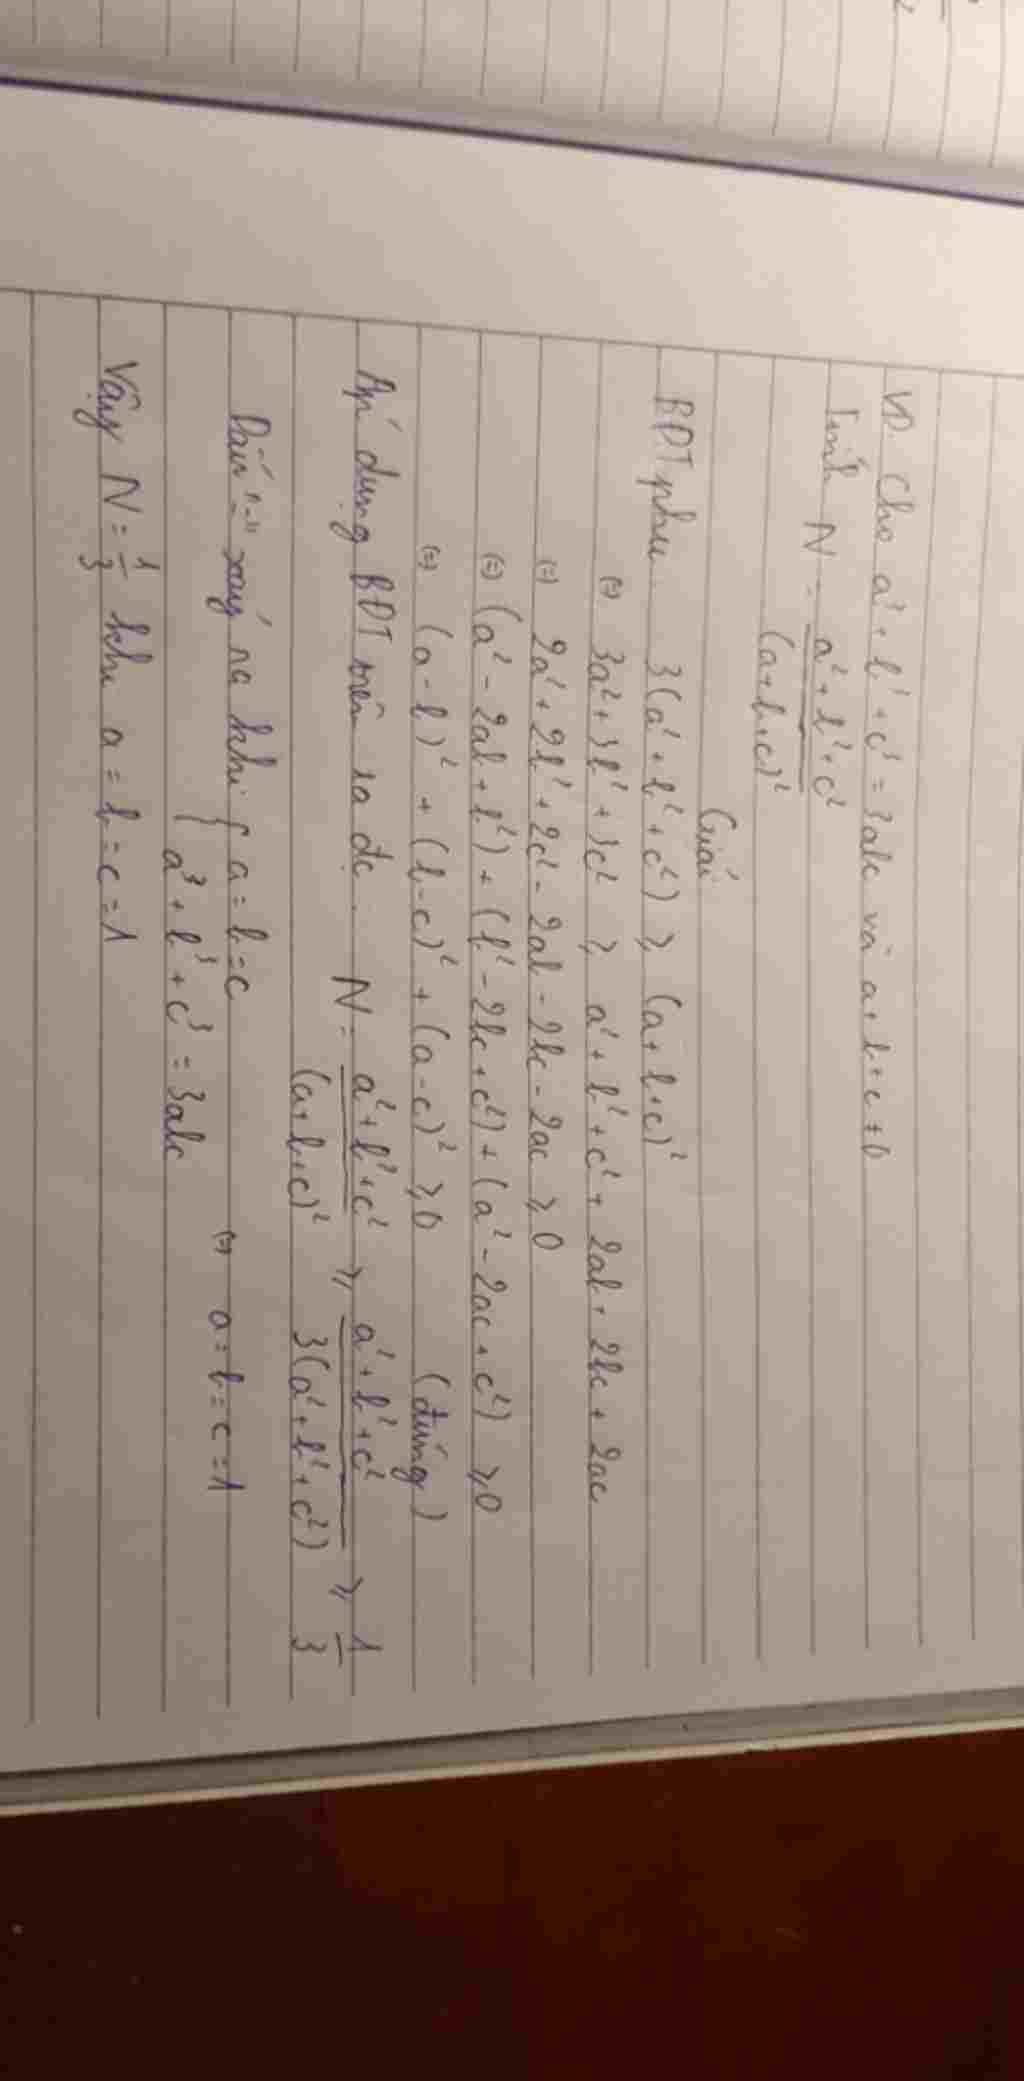 VD. Cho a³ + b³ + c³ = 3abc và a + b + c ≠ 0
Tính N = (a² + b² + c²) / (a + b + c)²
Giải
BĐT phụ 3(a² + b² + c²) ≥ (a + b + c)²
(=) 3a² + 3b² + 3c² ≥ a² + b² + c² + 2ab + 2bc + 2ac
(=) 2a² + 2b² + 2c² - 2ab - 2bc - 2ac ≥ 0
(=) (a² - 2ab + b²) + (b² - 2bc + c²) + (a² - 2ac + c²) ≥ 0
(=) (a - b)² + (b - c)² + (a - c)² ≥ 0 (đúng)
Áp dụng BĐT trên ta đc. N = (a² + b² + c²) / (a + b + c)² ≥ (a² + b² + c²) / 3(a² + b² + c²) ≥ 1/3
Dấu "=" xảy ra khi { a = b = c
a³ + b³ + c³ = 3abc (=) a = b = c = 1
Vậy N = 1/3 khi a = b = c = 1